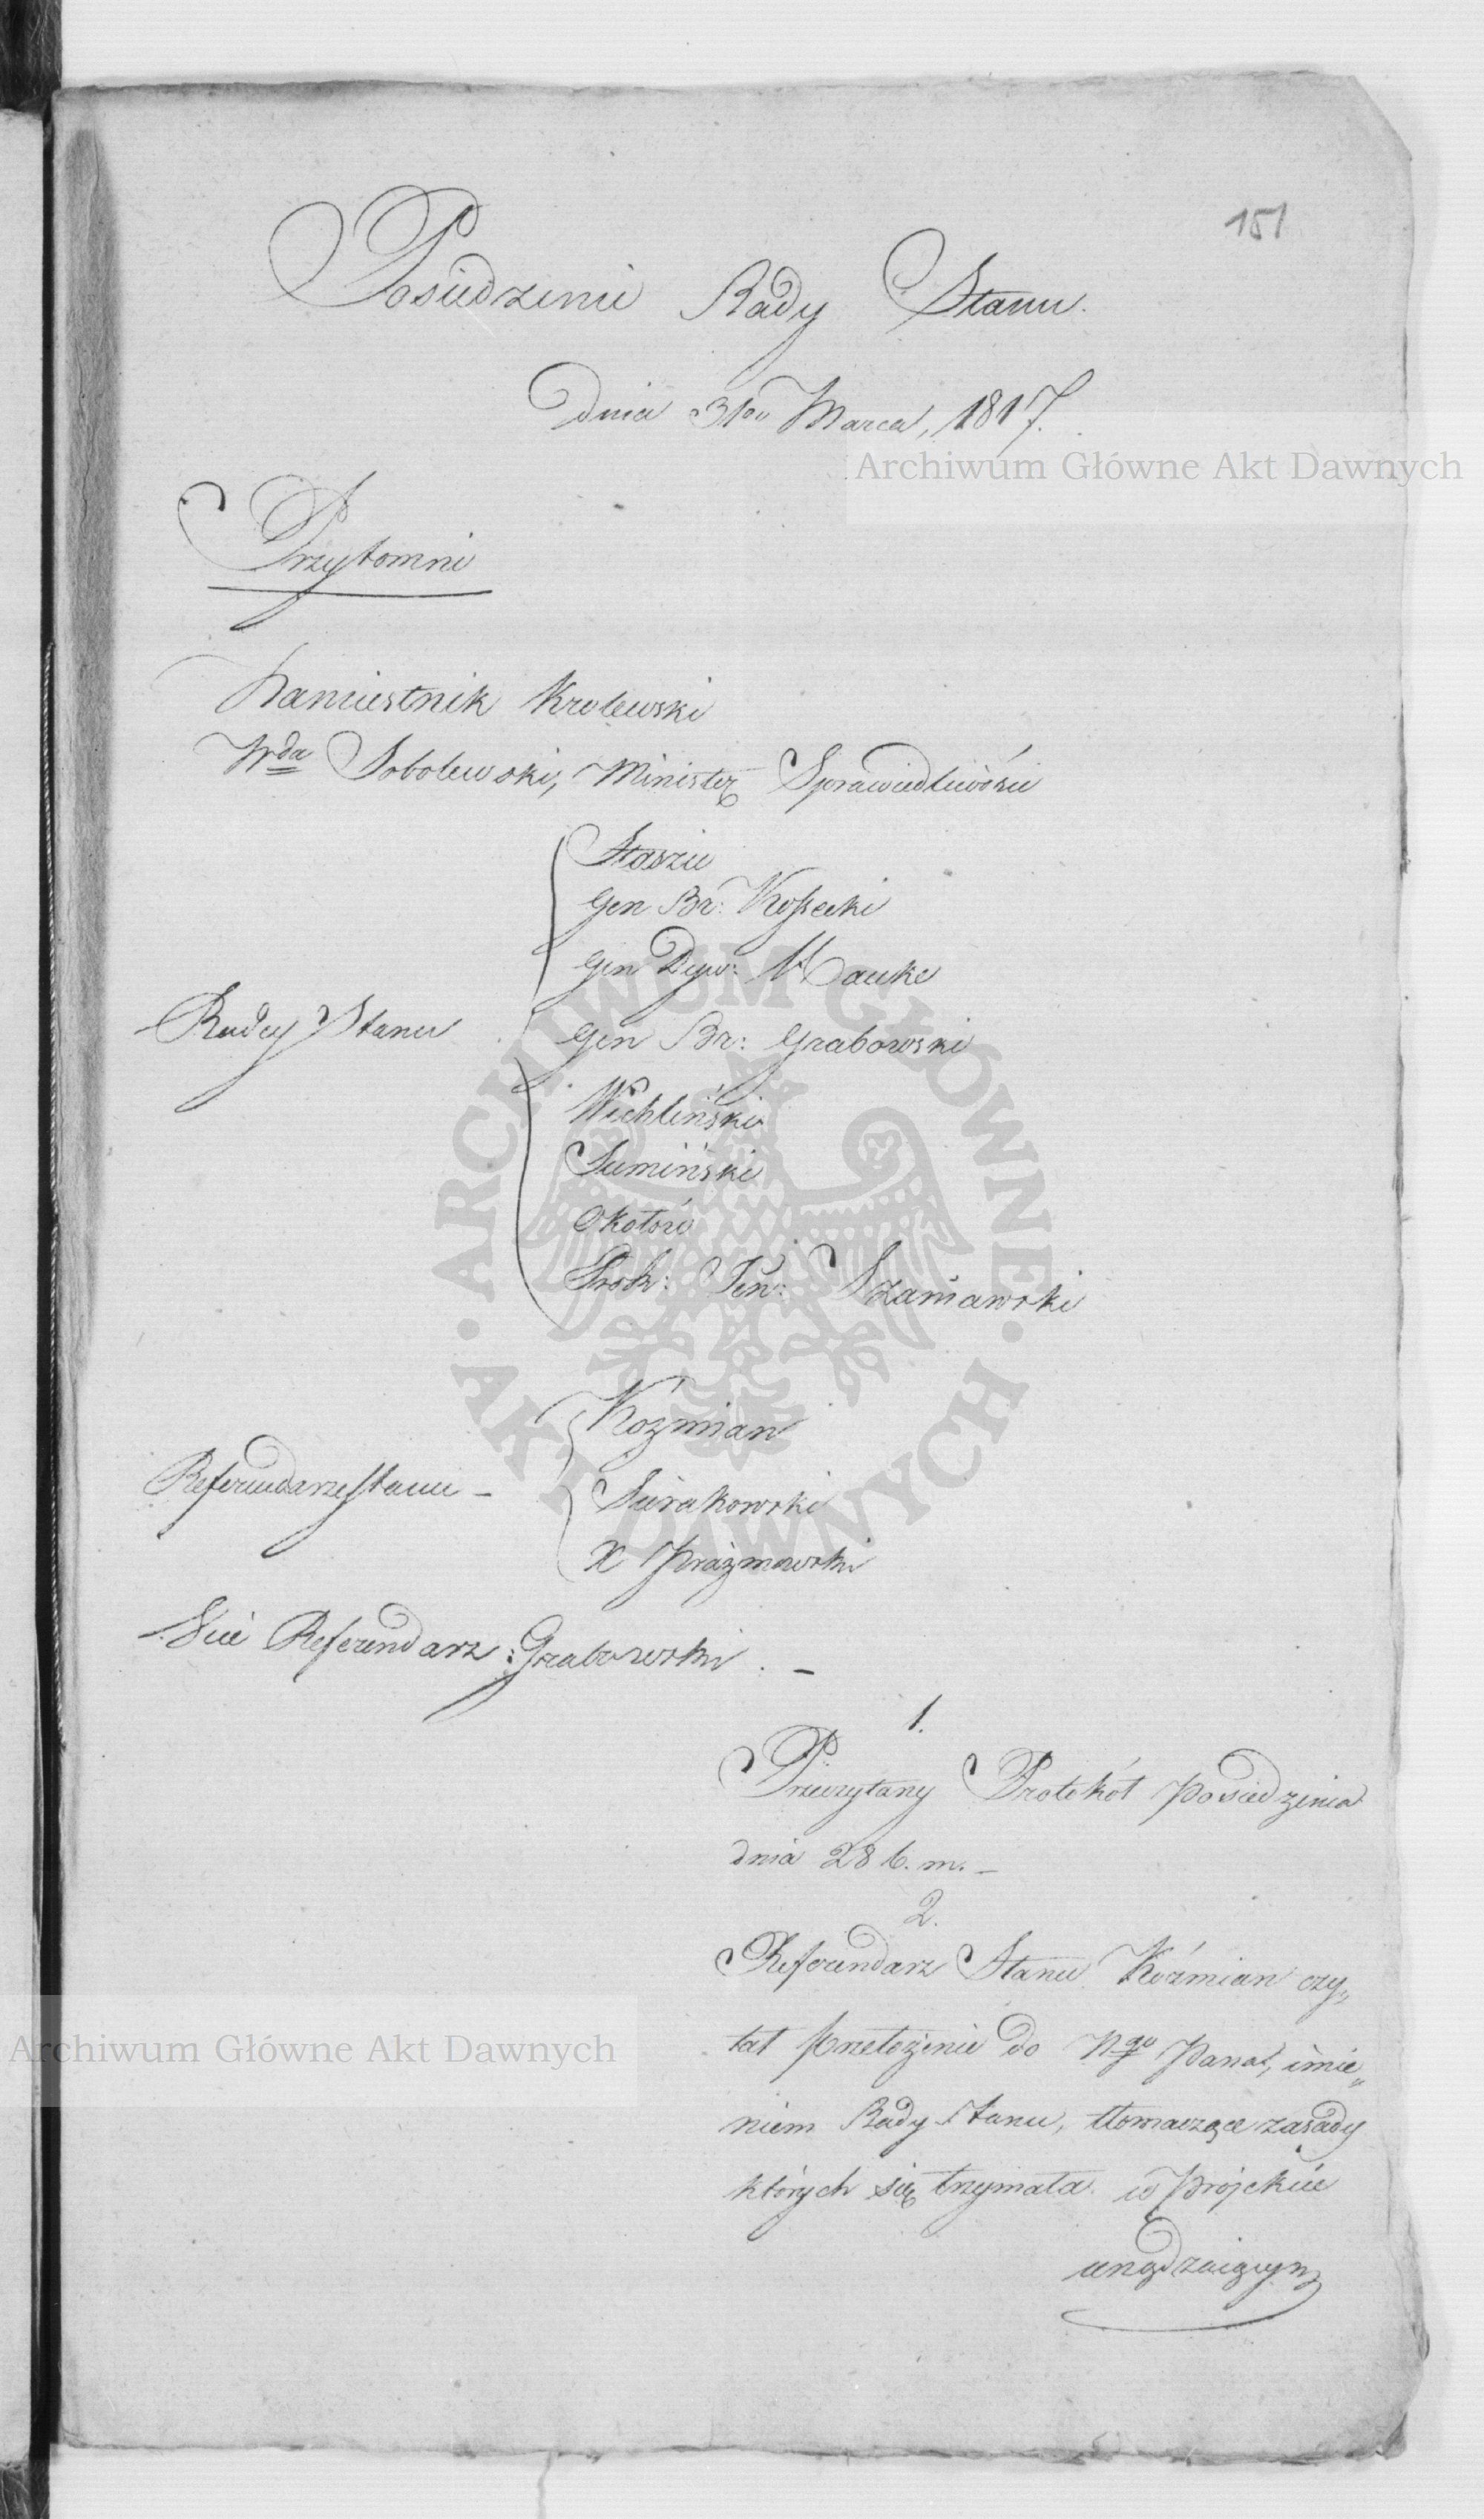 151
Posiedzenie Rady Stanu.
Dnia 31go Marca, 1817.
Archiwum Główne Akt Dawnych
Przytomni
Namiestnik Krolewski
Wda Sobolewski, Minister Sprawiedliwości
Staszic
Gen Br: Kossecki
Gen Dyw: Hauke
Radcy Stanu
Gen Br: Grabowski
Wichliński
Sumiński
Okołow
Prok: Jen: Szaniawski
ARCHIWUM GŁÓWNE AKT DAWNYCH
Koźmian
Referendarze Stanu -
Sierakowski
X Prażmowski
Vice Referendarz: Grabowski. -
1.
Przeczytany Protokół posiedzenia
dnia 28 b. m. -
2.
Referendarz Stanu Koźmian czy„
tał przełożenie do Ngo Pana, imie„
Archiwum Główne Akt Dawnych
niem Rady Stanu, tłomaczące zasady
których się trzymała w projekcie
urządzaiącym